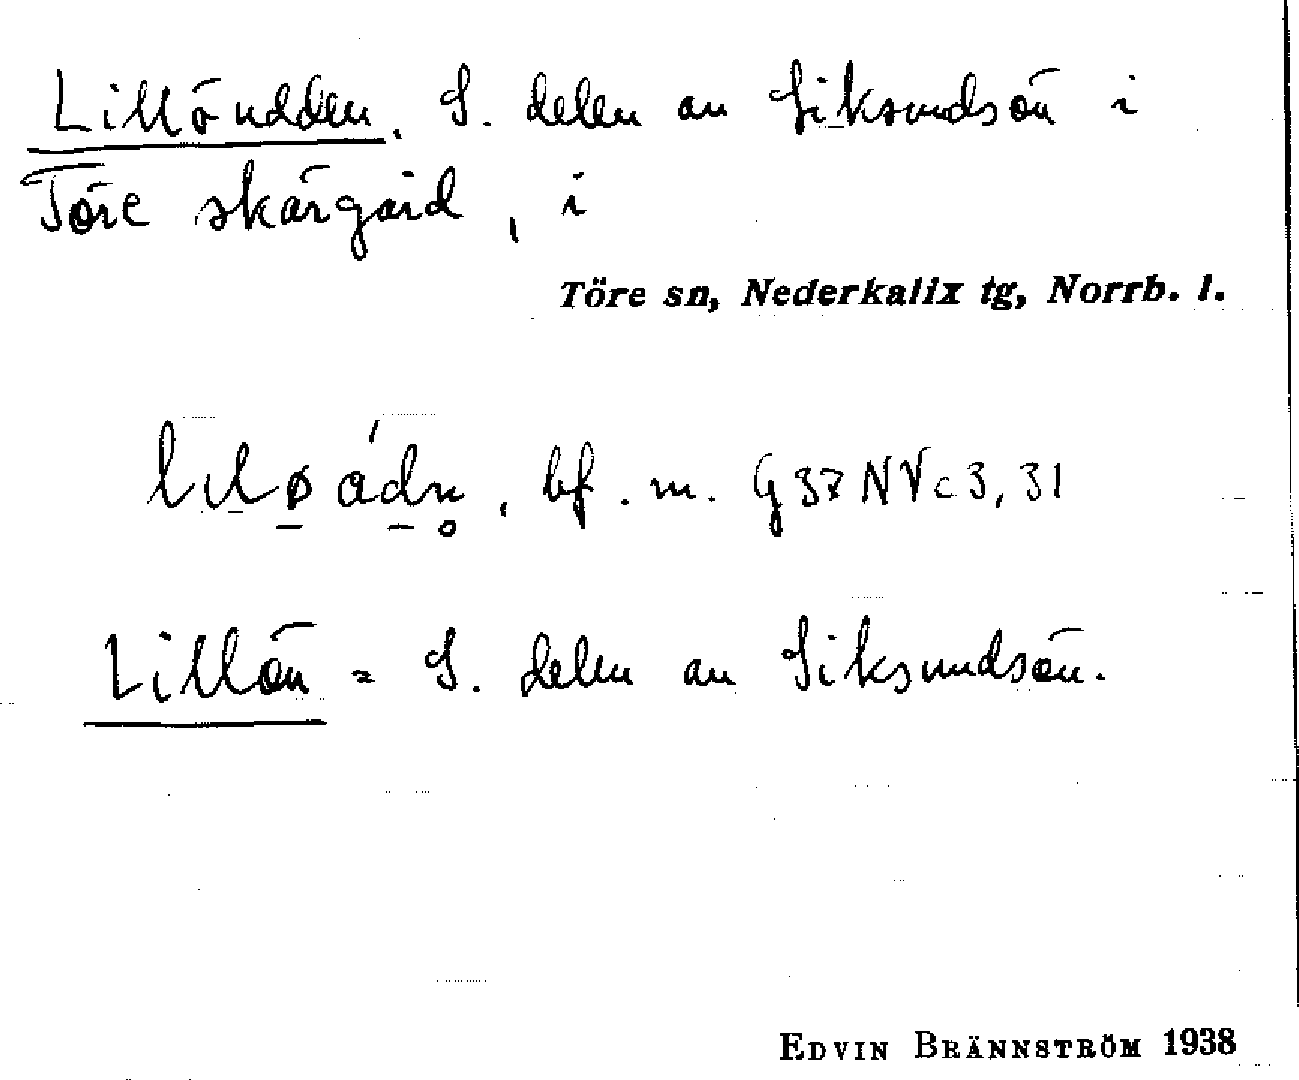 Lillöudden, S. delen av Siksundsön i
Töre skärgård, i
Töre sn, Nederkalix tg, Norrb. l.
bf. m. G37NVc3,31
Lillön = S. delen av Siksundsön.
EDVIN BRÄNNSTRÖM 1938